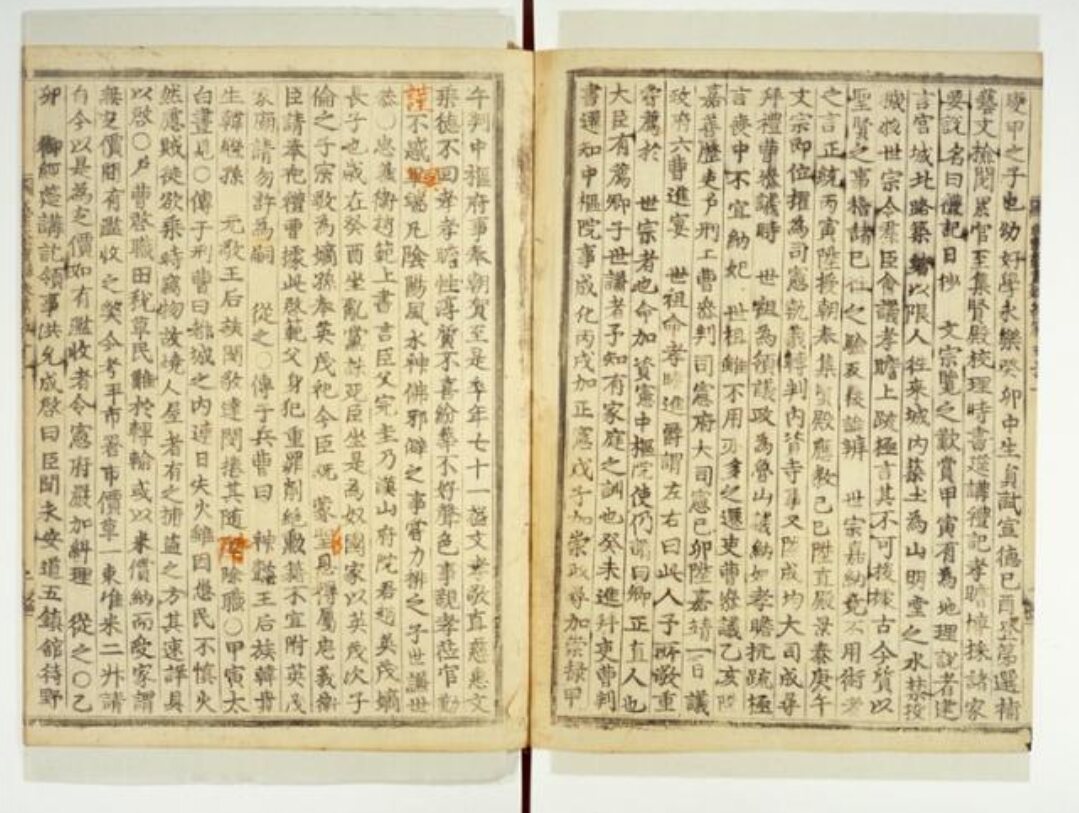 庚甲之子也幼好學永樂癸卯中生員試宣德己酉登第選補
藝文檢閱累官至集賢殿校理時書筵講禮記孝瞻採諸家
要說名曰禮記日抄 文宗覽之歎賞甲寅有為地理說者建
言宮城北路築墻以限人往來城內築土為山明堂之水禁投
穢惡世宗令群臣僉議孝瞻上疏極言其不可援據古今質以
聖賢之事稽諸已往之驗反覆論辨 世宗嘉納竟不用術者
之言正統丙寅陞授朝奉集賢殿應教己巳陞直殿景泰庚午
文宗即位擢為司憲執義轉判內資寺事又陞成均大司成尋
拜禮曹參議時 世祖為領議政為魯山議納妃孝瞻抗疏極
言喪中不宜納妃 世祖雖不用乃多之遷吏曹參議乙亥陞
嘉善歷吏戶刑工曹參判司憲府大司憲己卯陞嘉靖一日議
政府六曹進宴 世祖命孝瞻進爵謂左右曰此人予所敬重
嘗薦於 世宗者也命加資憲中樞院使仍謂曰卿正直人也
大臣有薦卿子世謙者予知有家庭之訓也癸未進升吏曹判
書遷知中樞院事成化丙戌加正憲戊子加崇政尋加崇祿甲
午判中樞府事奉朝賀至是卒年七十一諡文孝敬直慈惠文
秉德不回孝孝瞻性淳質不喜紛華不好聲色事親孝莅官勤
謹不惑異端凡陰陽風水神佛邪僻之事嘗力排之子世謙世
恭○忠義衛趙範上書言臣父完圭乃漢山府院君趙英茂嫡
長子也歲在癸酉坐亂黨誅死臣坐是為奴國家以英茂次子
倫之子宗敬為嫡孫奉英茂祀今臣既 蒙聖恩得屬忠義衛
臣請奉祀禮曹據此啓範父身犯重罪削絶勳籍不宜附英茂
家廟請勿許為嗣 從之○傳于兵曹曰 神懿王后族韓毋
生韓繼孫 元敬王后族閔敬達閔捲其隨階除職○甲寅太
白晝見○傳于刑曹曰都城之內連日失火雖因愚民不慎火
然應賊徒欲乘時竊物故燒人屋者有之捕盜之方其速詳具
以啓○戶曹啓職田稅草民難於轉輸或以米價納而受家謂
無定價間有濫收之弊今考平市署市價草一束准米二升請
自今以是為定價如有濫收者令憲府嚴加糾理 從之○乙
卯 御經筵講訖領事洪允成啓曰臣聞永安道五鎮館待野